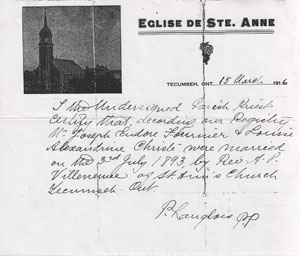 EGLISE DE STE. ANNE
TECUMSEH, ONT. 15 March 1916
I the Undersigned Parish Priest
certify that, according our Registry
Mr Joseph Eudore Fournier & Louise
Alexandrine Christ were married
on the 3rd July 1893 by Rev A. P.
Villeneuve of St. Ann's Church
Tecumseh Ont.
P. Langlois pp.